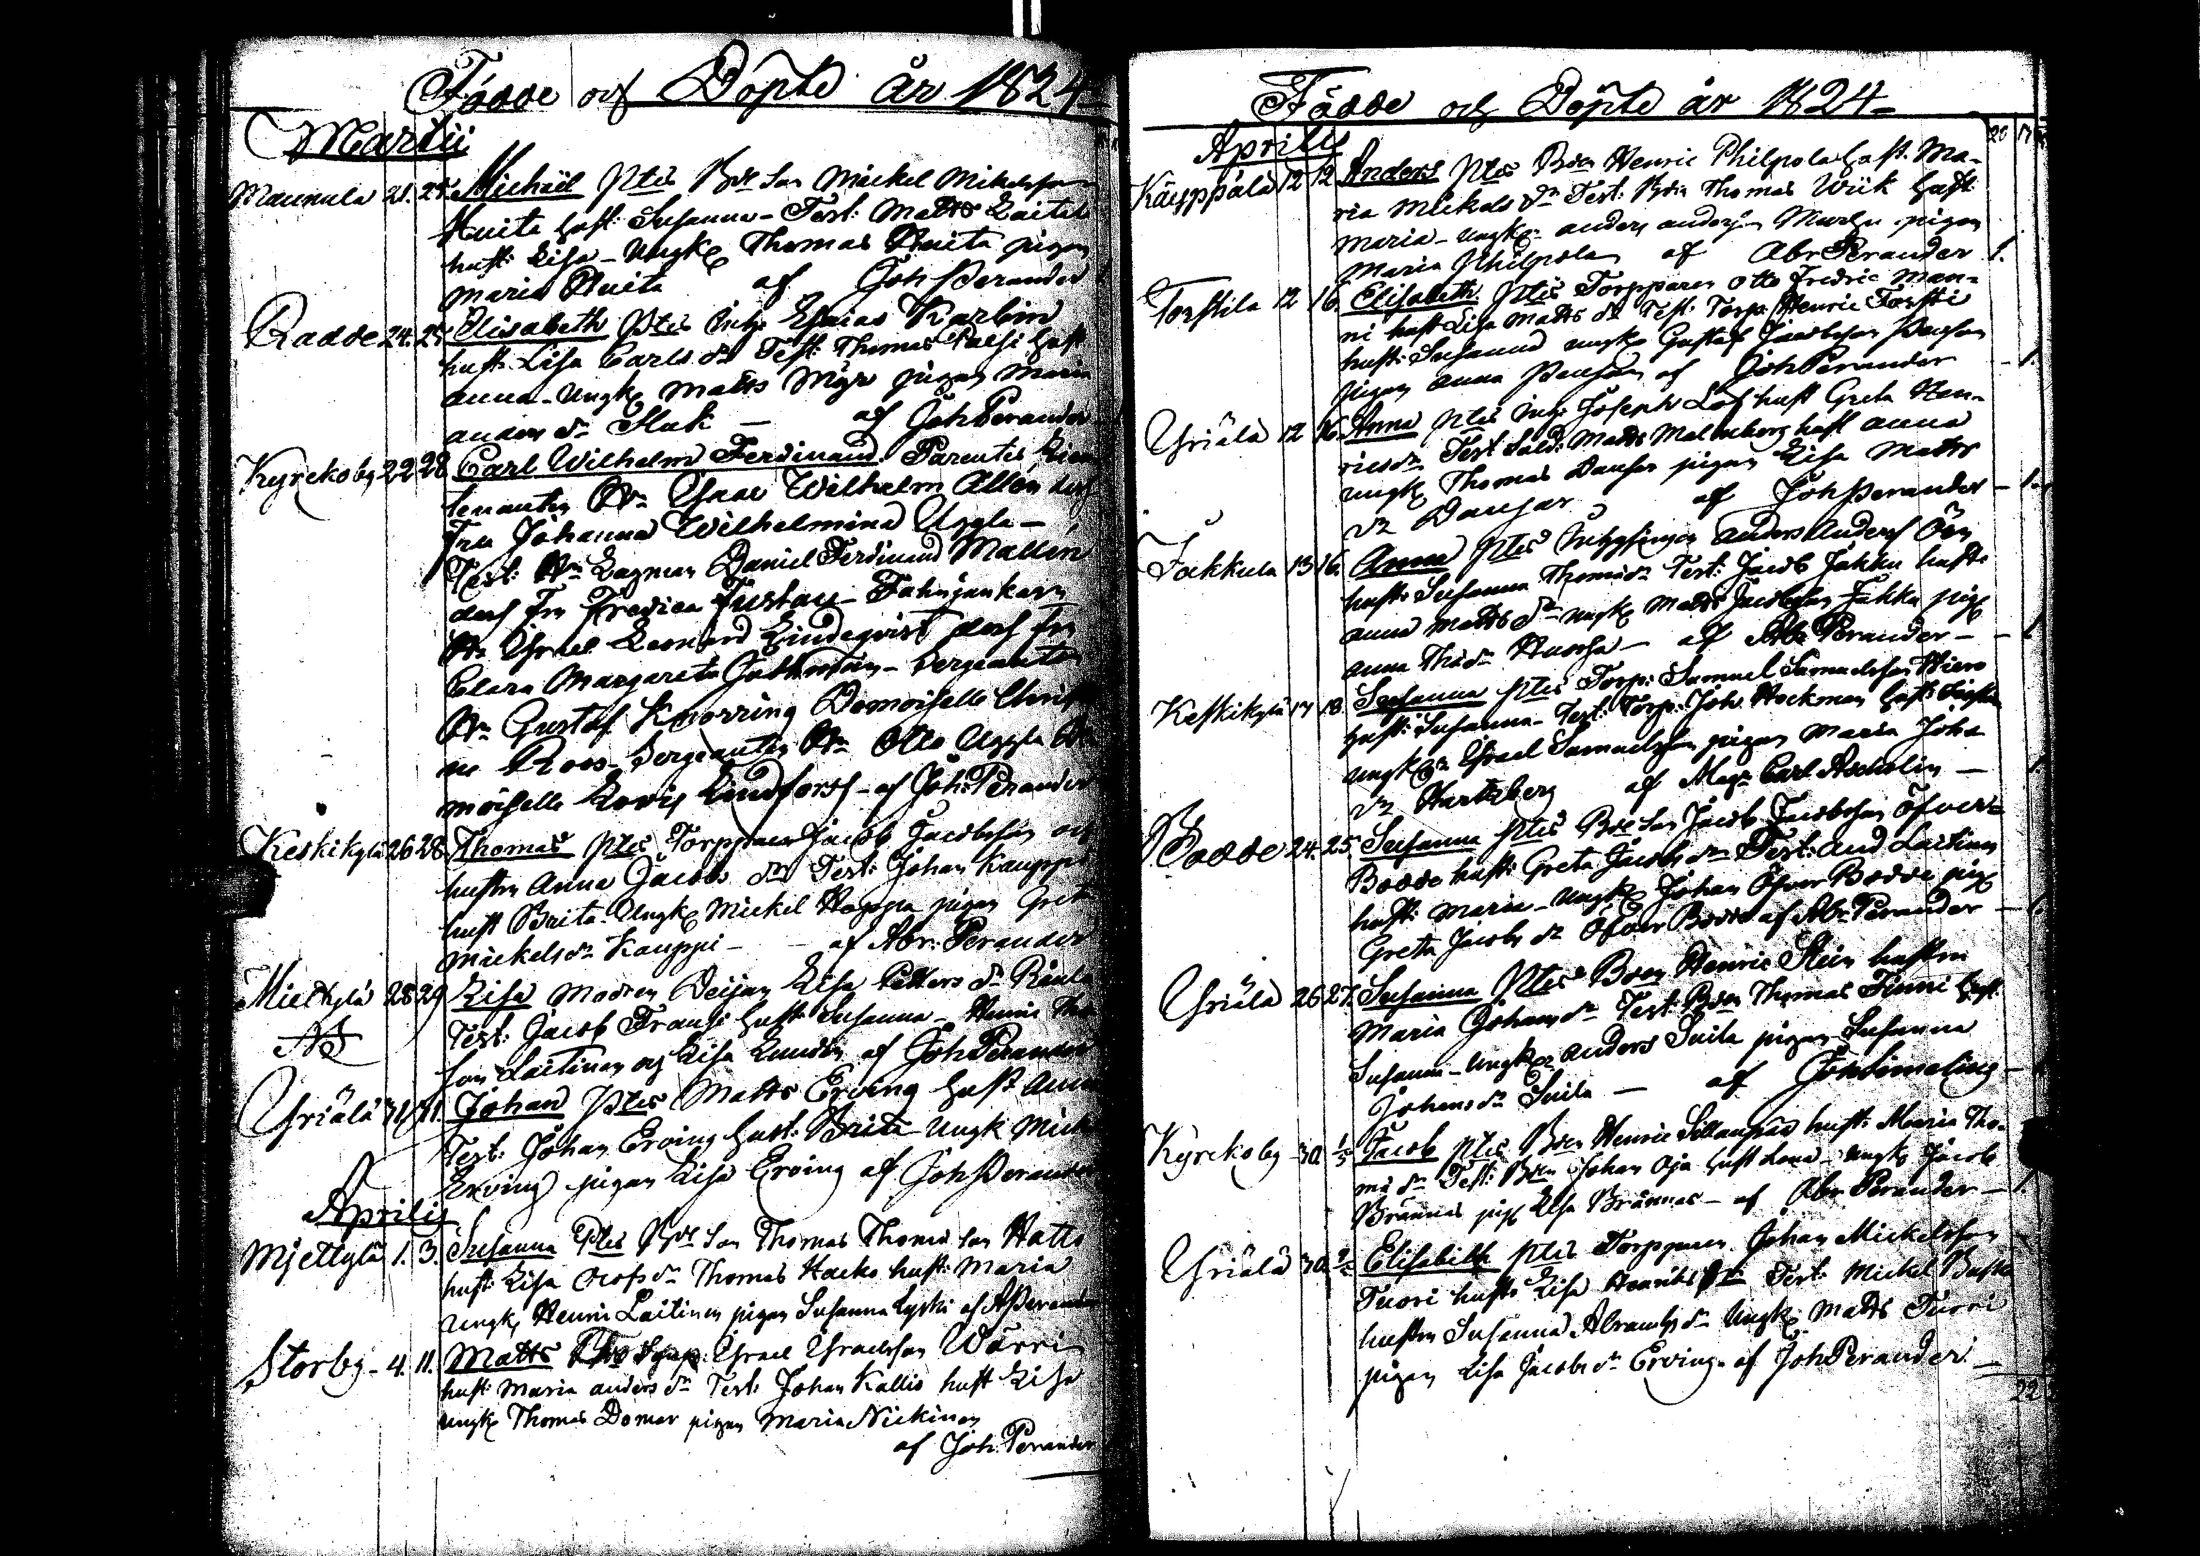 Födde och Döpte år 1824
Martii
Maunula 21. 25. Michäel Ptes Bde Son Mickel Mikelsson
Huita hust: Susanna - Test: Matts Laiti
hust: Lisa - Ungk Thomas Huita pigan
Maria Huita af Joh Perander
Radde 24. 25 Elisabeth Ptes Inh: Esaias Karlim
hust: Lisa Carls dr Test: Thomas Palsi hust
Anna - Ungk Matts Myr pigan Maria
Anders dr Sluk — af Joh Perander
Kyrckoby 22 28 Carl Wilhelm Ferdinand Parentes Lieu
tenanten Hr Isaac Wilhelm Allén och
Fru Johanna Wilhelmina Uggla -
Test: Hr Lagman Daniel Ferdinand Mallén
och Fru Fredica Fahnjunkarn
Hr Israel Leonard Lindeqvist och Fru
Clara Margareta - Sergeanten
Hr Gustaf Knorring Demoiselle Christi
ne Roos - Sergeanten Hr Otto Uggla De
moiselle Lovis Lindforss - af Joh: Perander
Keskikylä 26 28 Thomas Ptes Torpparen Jacob Jacobsson och
hustrn Anna Jacobs dr Test: Johan Kauppi
hust Brita - Ungk Mickel Hoppa pigan Greta
Mickels dr Kauppi - - af Abr: Perander
Mietkylä 28 29 Lisa Modren Deijan Lisa Petters dr
Test: Jacob Fransi hust: Susanna - Henric Tho
son Laitinen och Lisa af Joh Perander
Yriälä 31/ 11. Johan Ptes Matts Erving hust Anna
Test: Johan Erving hust: Brita Ungk Mick
Erving pigan Lisa Erving af Joh Perander
Aprilis
Mjettylä 1. 3. Susanna Ptes Bde Son Thomas Thomas son Hatto
hust: Lisa Olofs dr Thomas Hacko hust: Maria
Ungk Henric Laitinen pigan Susanna Lyski af A Perander
Storby - 4. 11. Matts Israel Israelsson Wärri
hust: Maria Anders dr Test: Johan Kallio hust Lisa
Ungk Thomas Domar pigan Maria Niekinen
af Joh: Perander
Födde och Döpte år 1824
Aprilis
Käuppälä 12 12 Anders Ptes Bden Henric Philpola hust: Ma-
ria Mickels dr Test: Bden Thomas Wiik hust
Maria - Ungk: Anders Andersson pigan
Maria Philpola af Abr Perander 1.
Torstila 12 16. Elisabeth Ptes Torpparen Otto Fredric Man-
ni hust Lisa Matts dr Test: Torp: Henric Torsti
hust: Susanna Ungk Gustaf Jacobsson
pigan Anna af Joh Perander - 1.
Yriälä 12 16. Anna Ptes Inh: Joseph Löf hust Greta Hen-
rics dr Test Sold: Matts Malmberg hust Anna
Ungk Thomas Dansar pigan Lisa Matts
dr Dansar af Joh Perander - 1.
Jakkula 13 16. Anna Ptes Anders Anders Örn
hust: Susanna Thomas dr Test: Jacob Jakku hust:
Anna Matts dr Ungk Matts Jacobsson Jakku pig
Anna Tho dr - af Abr Perander - - 1
Keskikylä 17 18. Susanna Ptes Torp: Samuel Samuelsson
hust: Susanna - Test: Torp: Joh: Heckman hust:
Ungk Israel Samuelsson pigan Maria Joha
dr Hartzberg af Mag: Carl Ascholin - 1.
Bodde 24. 25. Susanna Ptes Bde son Jacob Jacobsson Öfver
Bodde hust: Greta Jacobs dr Test: And Laitinen
hust: Maria - Ungk Johan Öfver Bodde pig
Greta Jacobs dr Öfver Bodde af Abr Perander
Yriälä 26 27. Susanna Ptes Bden Henric Skin hustrn
Maria Johans dr Test: Bden Thomas Finni hust:
Susanna - Ungk Anders Suila pigan Susanna
Johans dr Suila — af Joh Limeling - 1
Kyrckoby 30 1/5 Jacob Ptes Bden Henric Sillanpää hust: Maria Tho-
ma dr Test: Bden Johan Oja hust Lena - Ungk Jacob
Brännas pig Lisa Brännas - af Abr Perander - 1.
Yriälä 30 2/5 Elisabeth Ptes Torpparen Johan Mickelsson
Tuori hust: Lisa Henriks dr Test: Mickel
hustrn Susanna Abrams dr Ungk Matts Tuori
pigan Lisa Jacobs dr Erving - af Joh Perander -
22